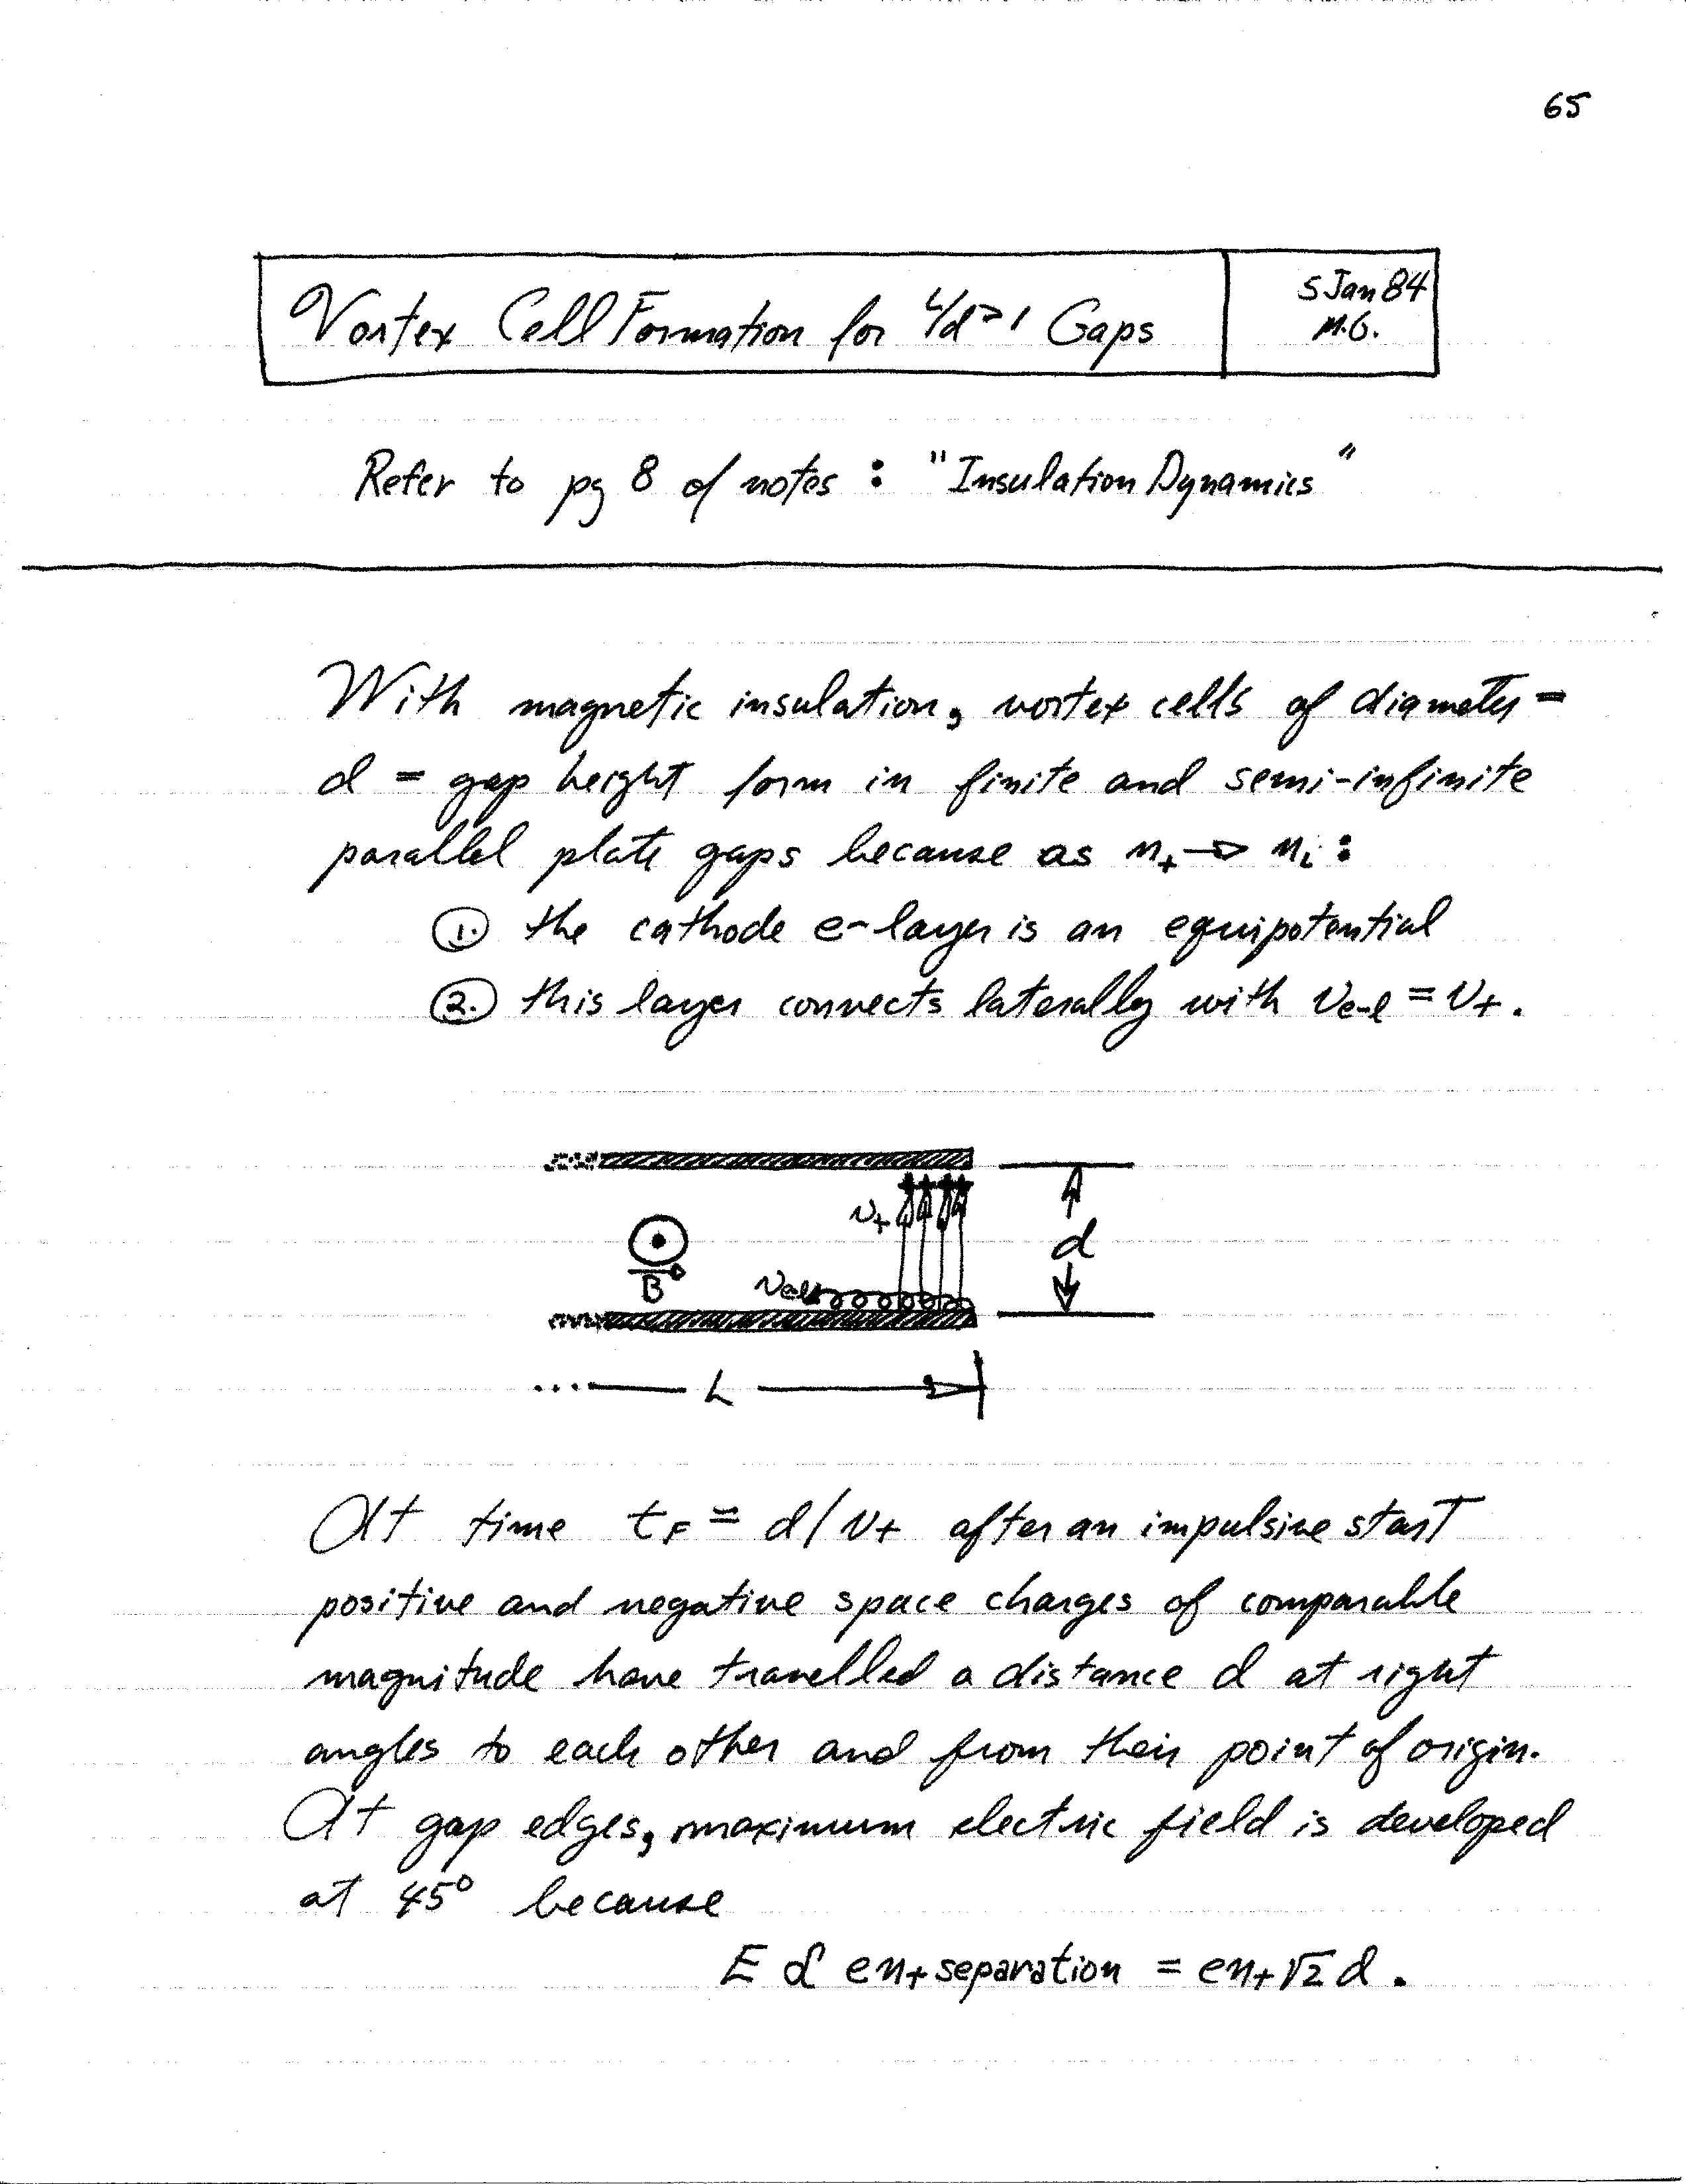 65
Vortex Cell Formation for L/d>1 Gaps
5 Jan 84
M.G.
Refer to pg 8 of notes: "Insulation Dynamics"
With magnetic insulation, vortex cells of diameter =
d = gap height form in finite and semi-infinite
parallel plate gaps because as n₊ → nᵢ :
1. the cathode e-layer is an equipotential
2. this layer connects laterally with v_e-l = v₊.
v₊
d
B
v_el
L
At time t_F = d/v₊ after an impulsive start
positive and negative space charges of comparable
magnitude have travelled a distance d at right
angles to each other and from their point of origin.
At gap edges, maximum electric field is developed
at 45° because
E ∝ en₊ separation = en₊√2 d.